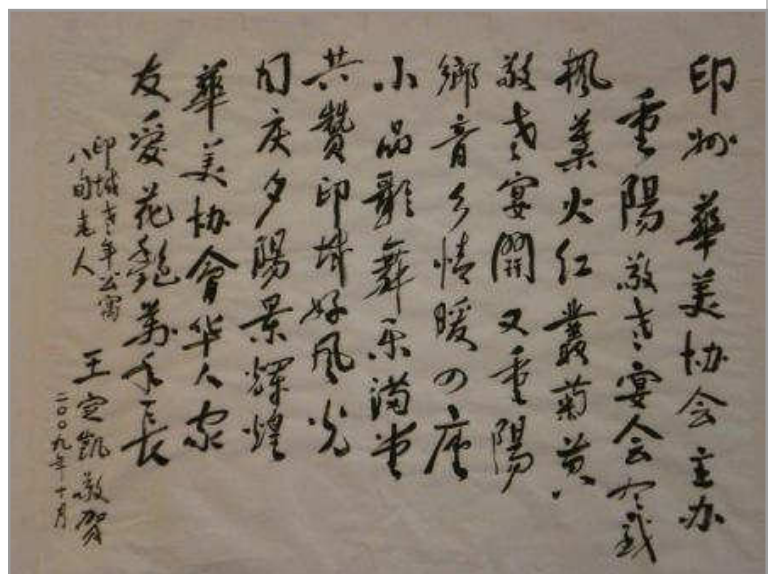 印州 華美协会主办
重陽敬老宴
楓葉火红叢菊黄
敬老宴開又重陽
鄉音乡情暖四座
小品歌舞乐满堂
共贊印城好风光
同庆夕陽景輝煌
華美协會华人家
友愛花艷萬年長
印城老年公寓
八旬老人
王定凱敬贺
二〇〇九年十月